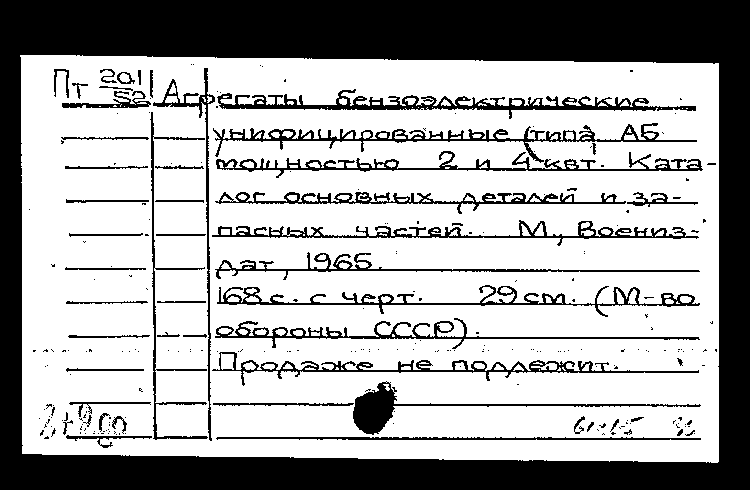 Пт 201/52 Агрегаты бензоэлектрические
унифицированные (типа АБ
мощностью 2 и 4 квт. Ката-
лог основных деталей и за-
пасных частей. М., Воениз-
дат, 1965.
168 с. с черт. 29 см. (М-во
обороны СССР).
Продаже не подлежит.